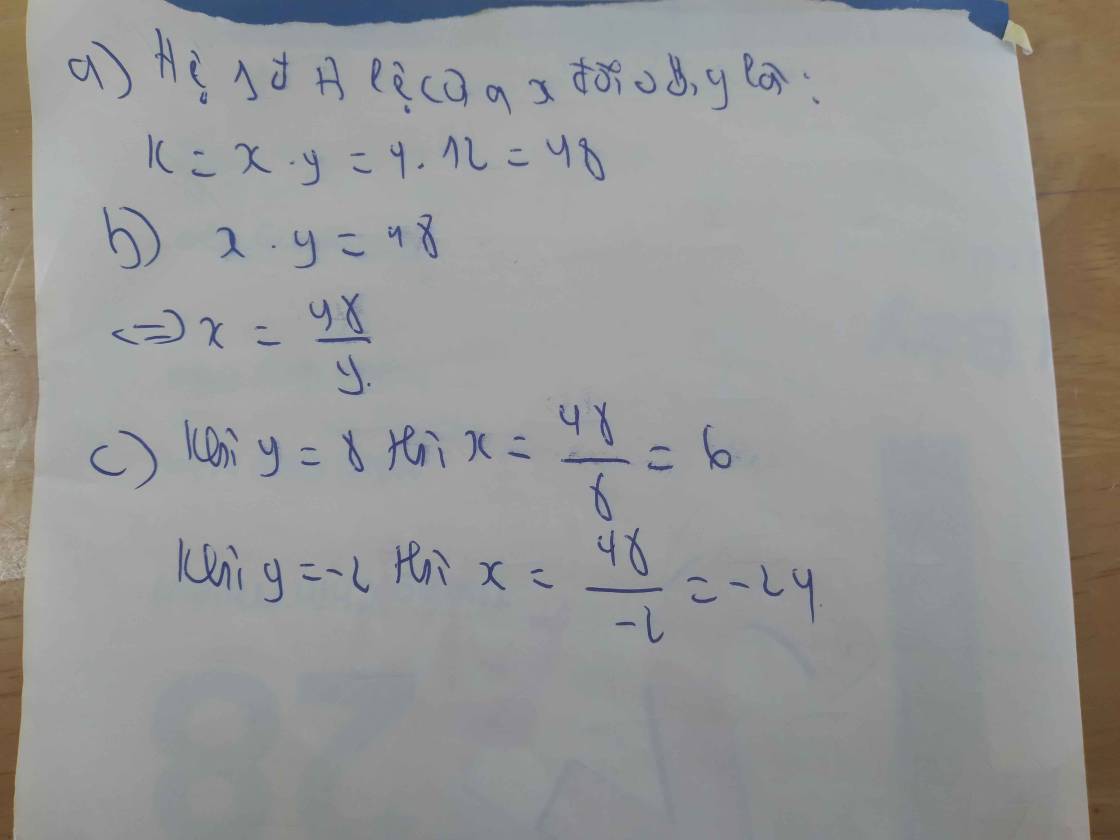 a) Hệ số tỉ lệ của x đối với y là:
K = x . y = 4 . 12 = 48
b) x . y = 48
<=> x = 48/y.
c) Khi y = 8 thì x = 48/8 = 6
Khi y = -2 thì x = 48/-2 = -24
38